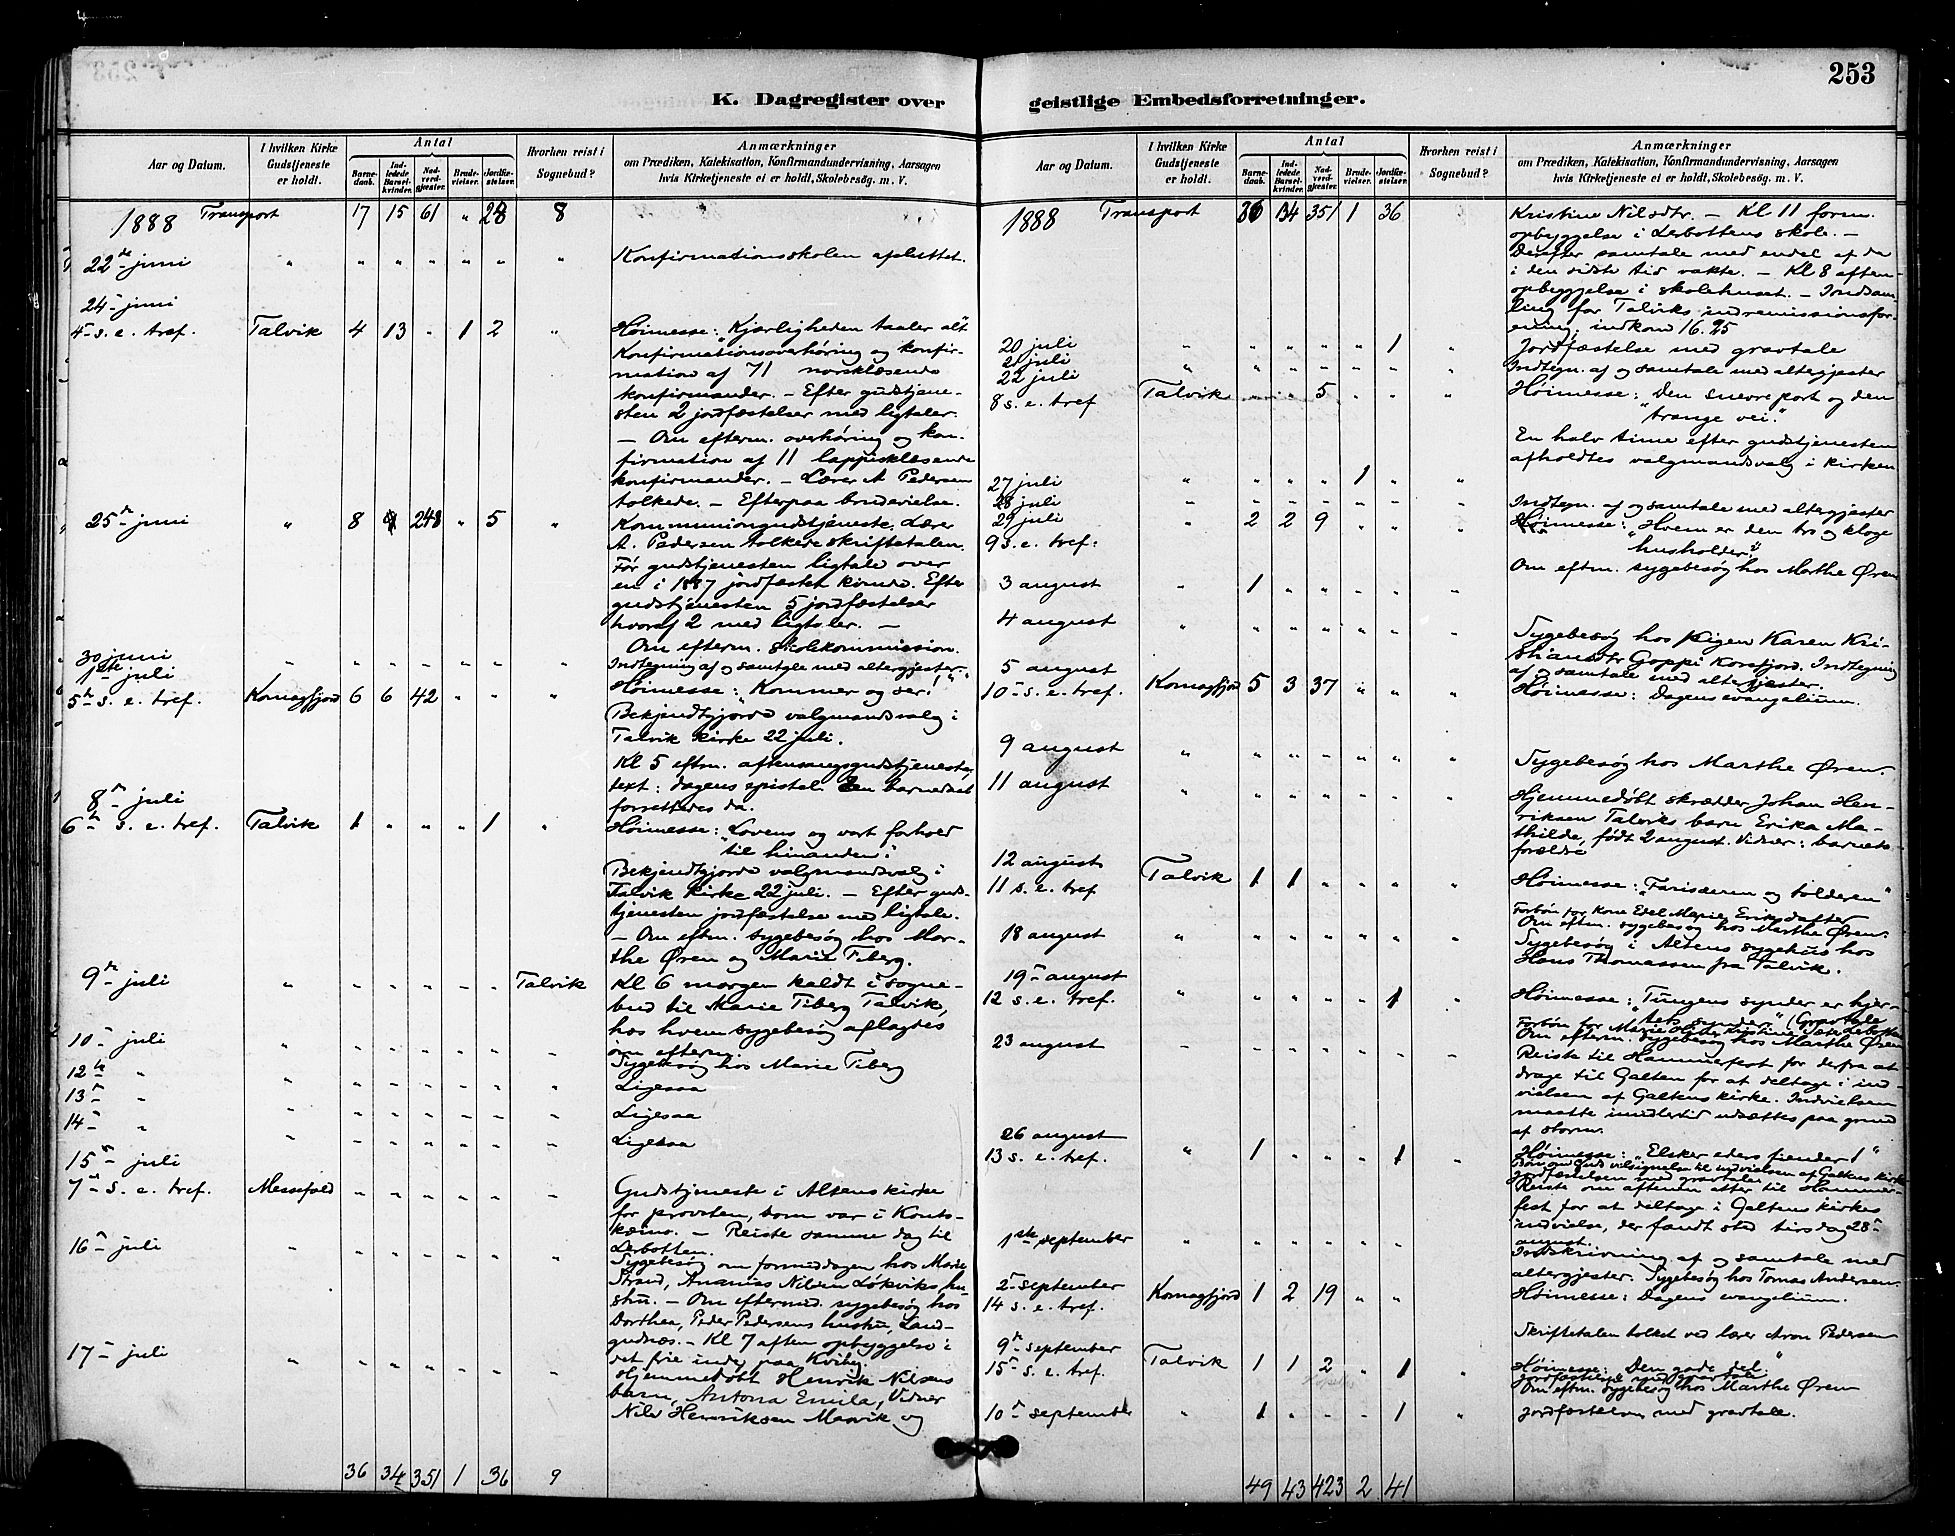 253
K. Dagregister over geistlige Embedsforretninger.
Aar og Datum.
I hvilken Kirke Gudstjeneste er holdt.
Antal
Barnedaab.
Indledede Barselkvinder.
Nadverdgjester.
Brudevielser.
Jordfæstelser.
Hvorhen reist i Sognebud?
Anmærkninger
om Prædiken, Katekisation, Konfirmandundervisning, Aarsagen
hvis Kirketjeneste ei er holdt, Skolebesøg. m. V.
1888 Transport 17 15 61 " 28 8
22de juni " " " " " " " Konfirmationsskolen afsluttet.
24- juni
4- s. e. tref. Talvik 4 13 " 1 2 " Høimesse: "Kjærligheden taaler alt"
Konfirmationsoverhøring og konfir-
mation af 71 norsklæsende
konfirmander. - Efter gudstjene-
sten 2 jordfæstelser med ligtaler.
- Om efterm. overhøring og kon-
firmation af 11 lappisklæsende
konfirmander. - Lærer A Pedersen
tolkede. - Efterpaa brudevielse.
25de juni " 8 9 248 " 5 " Kommuniongudstjeneste. Lærer
A. Pedersen tolkede skriftetalen.
Før gudstjenesten ligtale over
en i 1887 jordfæstet kvinde. Efter
gudstjenesten 5 jordfæstelser
hvoraf 2 med ligtaler. -
Om efterm. skolekommission.
30 juni " " " " " " " Indtegning af og samtale med altergjester.
1ste juli
5te s. e. tref. Komagfjord 6 6 42 " " " Høimesse: "Kommer og ser!"
Bekjendtgjorde valgmandsvalg i
Talvik kirke 22 juli.
Kl 5 eftm. aftensangsgudstjeneste,
text: dagens epistel. En barnedaab
forrettedes da.
8de juli
6te s. e. tref. Talvik 1 " " " 1 " Høimesse: "Lovens og vort forhold
til hinanden."
Bekjendtgjorde valgmandsvalg i
Talvik kirke 22 juli. - Efter guds-
tjenesten jordfæstelse med ligtale.
- Om eftm. sygebesøg hos Mar-
the Øren og Marie Tiberg.
9de juli " " " " " " Talvik Kl 6 morgen kaldt i sogne-
bud til Marie Tiberg Talvik,
hos hvem sygebesøg aflagdes
om efterm.
10- juli " " " " " " " Sygebesøg hos Marie Tiberg
12te " " " " " " " " Ligesaa
13- " " " " " " " " Ligesaa
14- " " " " " " " " Ligesaa
15de juli
7de s. e. tref. Messefald " " " " " " Gudstjeneste i Altens kirke
for provsten, som var i Kauto-
kæino. - Reiste samme dag til
Lerbotten.
16de juli " " " " " " " Sygebesøg om formiddagen hos Marie
Strand, Ananias Nilsen Løkviks hu-
stru. - Om eftermid. sygebesøg hos
Dorthea, Peder Pedersens hustru, Land-
gudnæs. - Kl 7 aften opbyggelse i
det frie inde paa Kviby.
17- juli " " " " " " " Hjemmedøbt Henrik Nilsens
barn, Antona Emila, Vidner
Nils Henriksen Marvik og
36 34 351 1 36 9
Aar og Datum.
I hvilken Kirke Gudstjeneste er holdt.
Antal
Barnedaab.
Indledede Barselkvinder.
Nadverdgjester.
Brudevielser.
Jordfæstelser.
Hvorhen reist i Sognebud?
Anmærkninger
om Prædiken, Katekisation, Konfirmandundervisning, Aarsagen
hvis Kirketjeneste ei er holdt, Skolebesøg. m. V.
1888 Transport 36 34 351 1 36 Kristine Nilsdtr. - Kl 11 form.
opbyggelse i Lerbottens skole. -
Derefter samtale med endel af de
i den sidste tid vakte. - Kl 8 aften
opbyggelse i skolehuset. - Indsam-
ling for Talviks indremissionsfor-
ening; indkom 16.25
20 juli " " " " " 1 " Jordfæstelse med gravtale
21 juli " " " " " " " Indtegn. af og samtale med altergjester
22 juli
8 s. e. tref Talvik " " 5 " " " Høimesse: "Den snevre port og den
trange vei."
En halv time efter gudstjenesten
afholdtes valgmandsvalg i kirken
27 juli " " " " 1 " "
28 juli Indtegn. af og samtale med altergjester
29 juli " 2 2 9 " " " Høimesse: "Hvem er den tro og kloge
9 s. e. tref. husholder?"
Om eftm. sygebesøg hos Marthe Øren
3 august " 1 " " " " "
4 august " " " " " " " Sygebesøg hos pigen Karen Kri-
stiansdtr Goppi Korsfjord. Indtegning
af og samtale med altergjester.
5 august
10- s. e. tref. Komagfjord 5 3 37 " " " Høimesse: Dagens evangelium.
9 august " " " " " " " Sygebesøg hos Marthe Øren.
11 august " " " " " " " Hjemmedøbt skrædder Johan Hen-
riksen Talviks barn Erika Ma-
thilde, født 2 august. Vidner: barnets
forældre
12 august
11 s. e. tref Talvik 1 1 " " " " Høimesse: "Farisæeren og tolderen"
Forbøn for Kone Edel Marie Eriksdatter
Om eftm. sygebesøg hos Marthe Øren.
18 august " " " " " " " Sygebesøg i Altens sygehus hos
Hans Thomassen fra Talvik.
19- august
12 s. e. tref. " " " " " 1 " Høimesse: "Tungens synder er hjer-
tets synder." (Gravtale
Om efterm. sygebesøg hos Marthe Øren
23 august " " " " " " " Reiste til Hammerfest for derfra at
drage til Galten for at deltage i ind-
vielsen af Galtens kirke. Indvielsen
maatte imidlertid udsættes paa grund
af storm.
26 august
13 s. e. tref. " 1 " " " 1 " Høimesse: "Elsker eders fiender!"
Bøn om Guds velsignelse til indvielsen af Galtens kirke
Jordfæstelsen med gravtale
Reiste om aftenen atter til Hammer-
fest for at deltage i Galtens kirkes
indvielse, der fandt sted tirsdag 28-
august.
1ste september " " " " " " " Indskrivning af og samtale med
altergjester. Sygebesøg hos Tomas Andersen.
2- september
14 s. e. tref. Komagfjord 1 2 19 " " Høimesse: Dagens evangelium.
Skriftetalen tolket ved lærer Aron Pedersen
9de september
15- s. e. tref. Talvik 1 1 2 " 1 " Høimesse: "Den gode del."
Jordfæstelse med gravtale
Om eftm. sygebesøg hos Marthe Øren
10de september " 1 " " " 1 " Jordfæstelse med gravtale.
49 43 423 2 41